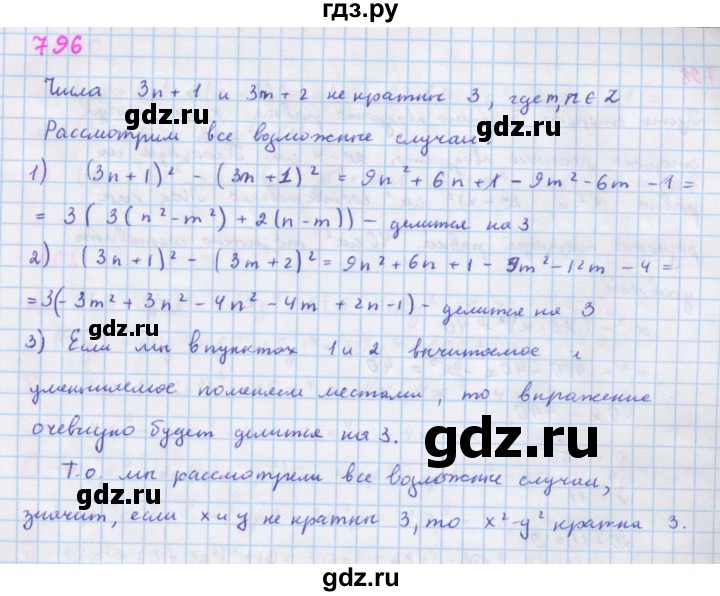 гдз.рф
796
Числа 3n + 1 и 3m + 2 не кратны 3, где m, n ∈ Z
gdz.ru
Рассмотрим все возможные случаи:
1) (3n+1)² - (3m+1)² = 9n² + 6n + 1 - 9m² - 6m - 1 =
= 3(3(n² - m²) + 2(n - m)) - делится на 3
gdz.ru
2) (3n+1)² - (3m+2)² = 9n² + 6n + 1 - 9m² - 12m - 4 =
= 3(-3m² + 3n² - 4n² - 4m + 2n - 1) - делится на 3
gdz.ru
3) Если мы в пунктах 1 и 2 вычитаемое и
уменьшаемое поменяем местами, то выражение
gdz.ru
очевидно будет делится на 3.
Т.о. мы рассмотрели все возможные случаи,
gdz.ru
значит, если x и y не кратны 3, то x² - y² кратна 3.
gdz.ru